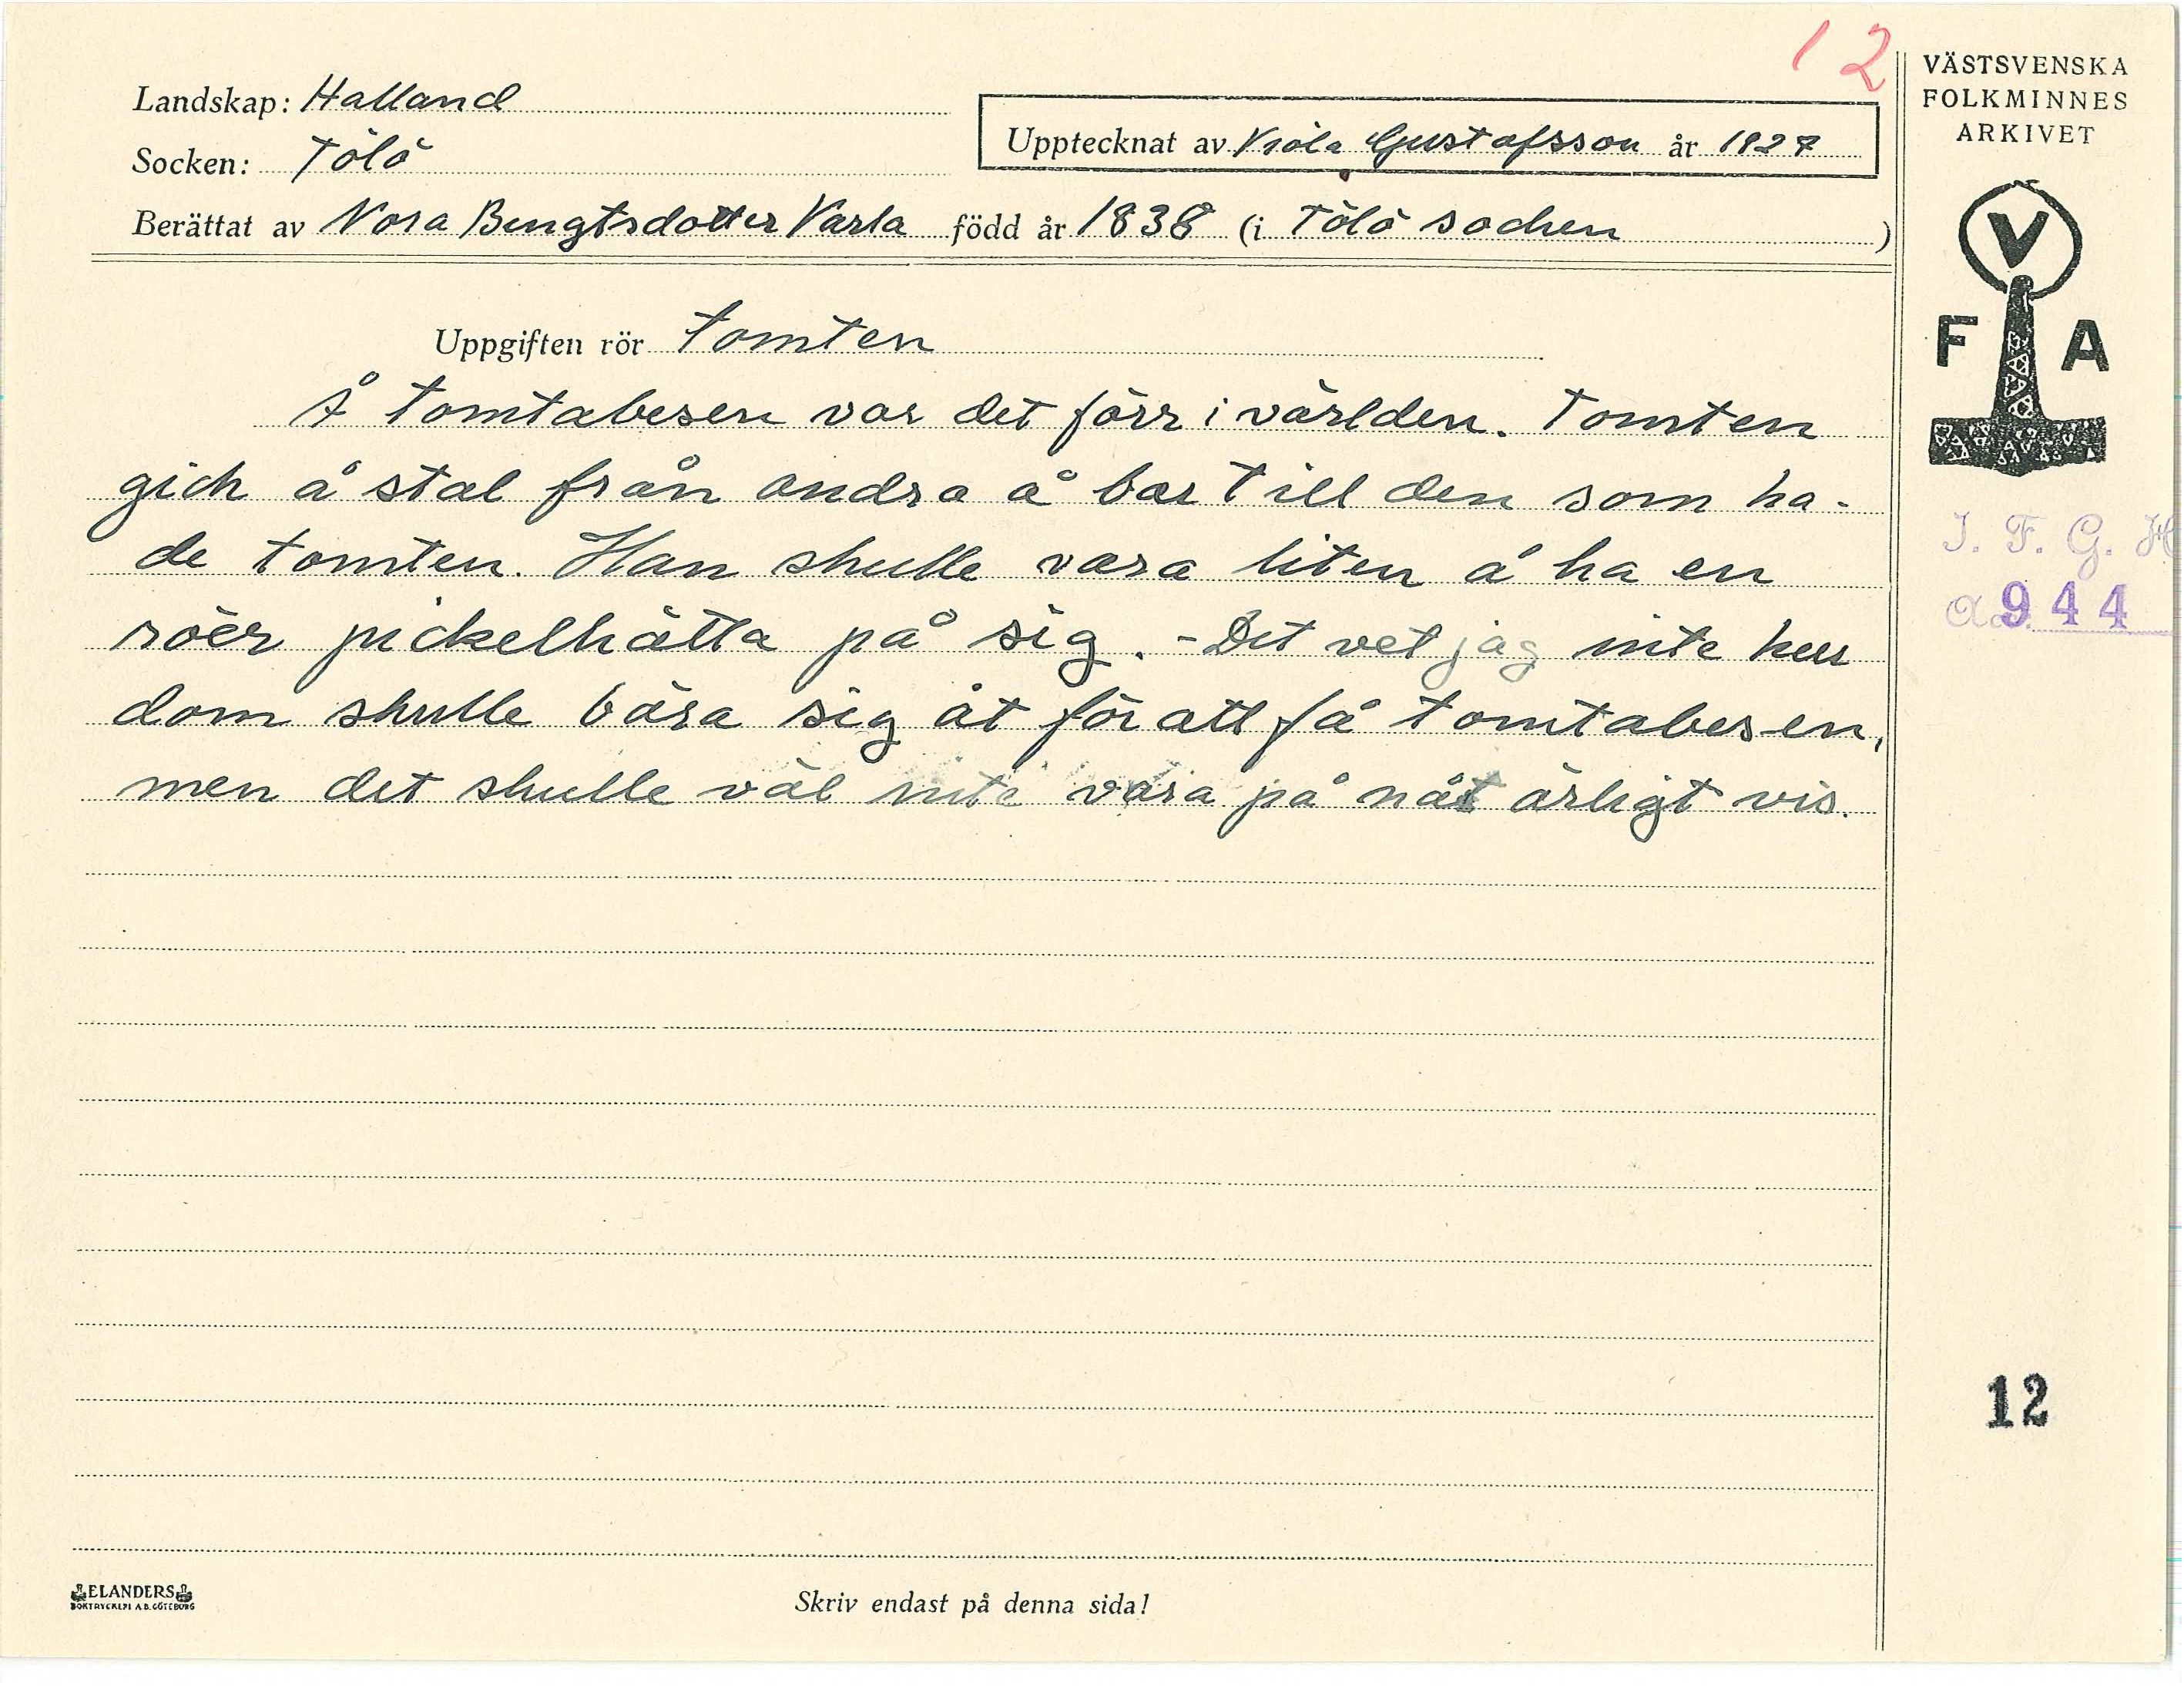 12
VÄSTSVENSKA
FOLKMINNES
ARKIVET
Landskap: Halland
Socken: Tölö
Upptecknat av Viola Gustafsson år 1927
Berättat av Nora Bengtsdotter Varla född år 1838 (i Tölö socken)
V
F A
I. F. G. H
944
Uppgiften rör tomten
Å tomtabesen var det förr i världen. Tomten
gick å stal från andra å bar till den som ha-
de tomten. Han skulle vara liten å ha en
röer pickelhätta på sig. - Det vet jag inte hur
dom skulle bära sig åt för att få tomtabesen,
men det skulle väl inte vara på nåt ärligt vis.
12
ELANDERS
BOKTRYCKERI A.B. GÖTEBORG
Skriv endast på denna sida!